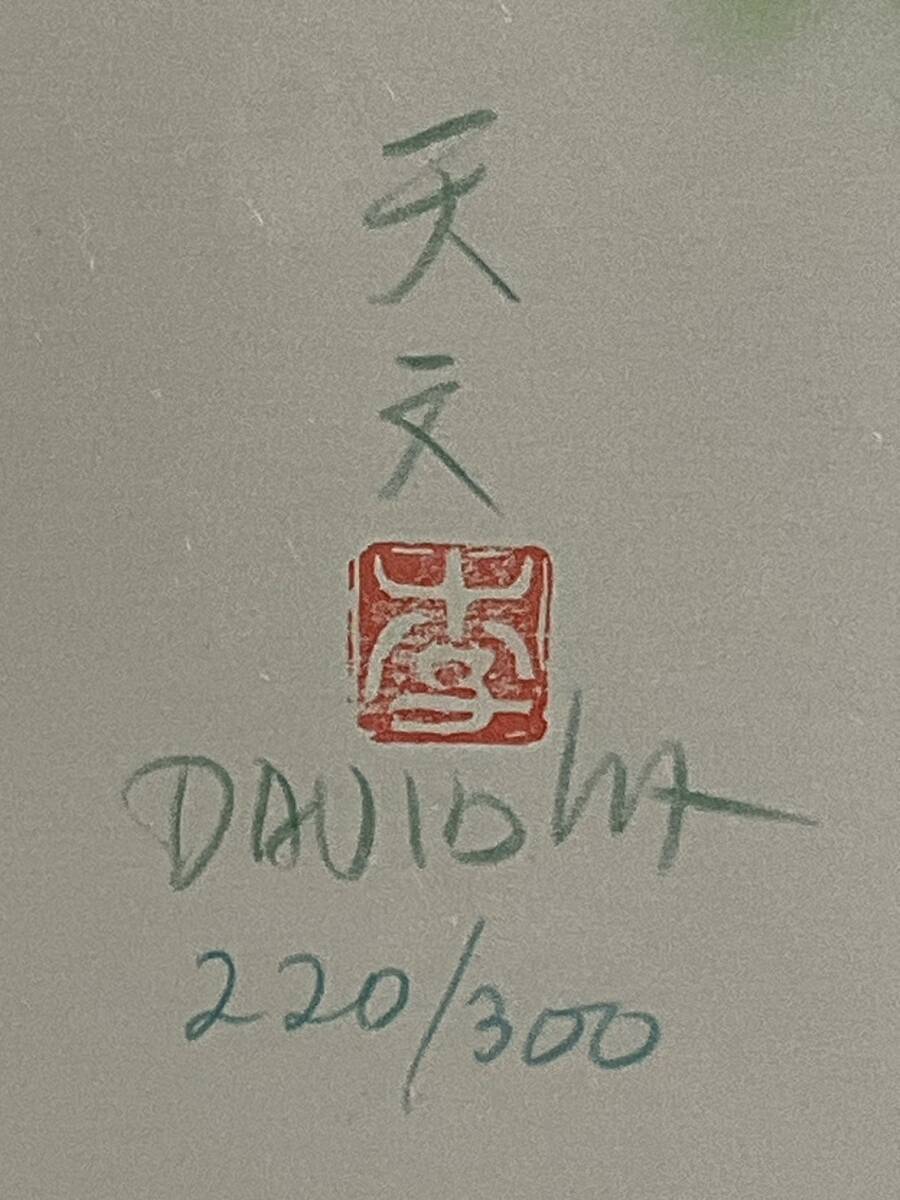 天
文
李
DAVID
220/300